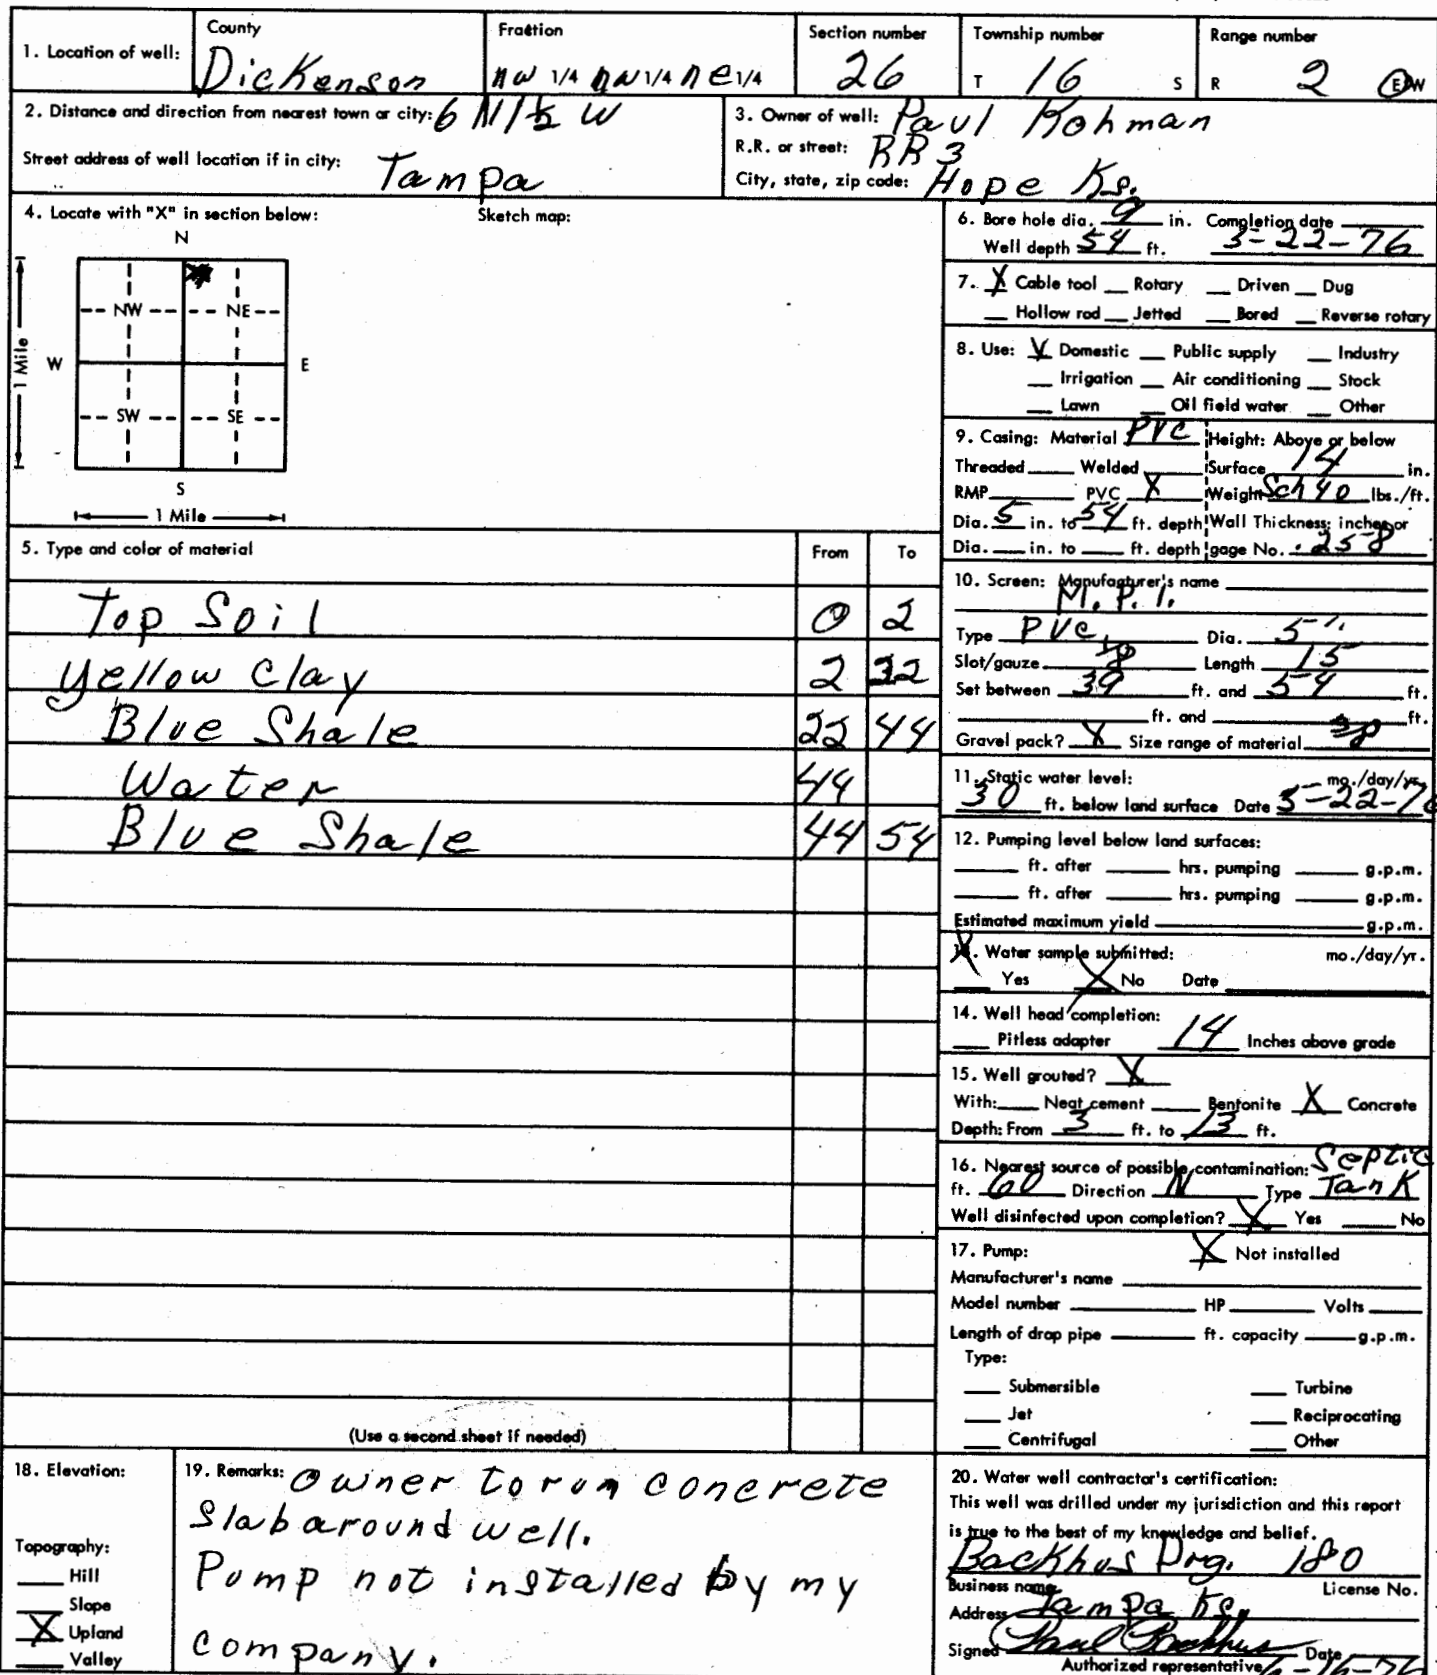 1. Location of well: County Dickenson Fraction nw 1/4 nw 1/4 ne 1/4 Section number 26 Township number T 16 S Range number R 2 E W
2. Distance and direction from nearest town or city: 6 N 1/2 W
Street address of well location if in city: Tampa
3. Owner of well: Paul Rohman
R.R. or street: RR 3
City, state, zip code: Hope Ks.
4. Locate with "X" in section below: Sketch map:
N
NW NE
W E
1 Mile
SW SE
S
1 Mile
5. Type and color of material From To
Top Soil 0 2
Yellow Clay 2 22
Blue Shale 22 44
Water 44
Blue Shale 44 54
(Use a second sheet if needed)
6. Bore hole dia. 9 in. Completion date
Well depth 54 ft. 5-22-76
7. X Cable tool Rotary Driven Dug
Hollow rod Jetted Bored Reverse rotary
8. Use: V Domestic Public supply Industry
Irrigation Air conditioning Stock
Lawn Oil field water Other
9. Casing: Material PVC Height: Above or below
Threaded Welded Surface 14 in.
RMP PVC X Weight Sch 40 lbs./ft.
Dia. 5 in. to 54 ft. depth Wall Thickness: inches or
Dia. in. to ft. depth gage No. .258
10. Screen: Manufacturer's name
M. P. I.
Type PVC Dia. 5"
Slot/gauze Length 15
Set between 39 ft. and 54 ft.
ft. and ft.
Gravel pack? X Size range of material
11. Static water level: mo./day/yr.
30 ft. below land surface Date 5-22-76
12. Pumping level below land surfaces:
ft. after hrs. pumping g.p.m.
ft. after hrs. pumping g.p.m.
Estimated maximum yield g.p.m.
13. Water sample submitted: mo./day/yr.
Yes X No Date
14. Well head completion:
Pitless adapter 14 Inches above grade
15. Well grouted? X
With: Neat cement Bentonite X Concrete
Depth: From 3 ft. to 13 ft.
16. Nearest source of possible contamination: Septic
ft. 60 Direction N Type Tank
Well disinfected upon completion? X Yes No
17. Pump: X Not installed
Manufacturer's name
Model number HP Volts
Length of drop pipe ft. capacity g.p.m.
Type:
Submersible Turbine
Jet Reciprocating
Centrifugal Other
18. Elevation:
Topography:
Hill
Slope
X Upland
Valley
19. Remarks: Owner to run concrete
Slab around well.
Pump not installed by my
company.
20. Water well contractor's certification:
This well was drilled under my jurisdiction and this report
is true to the best of my knowledge and belief.
Backhus Drg. 180
Business name License No.
Address Tampa Ks.
Signed Paul Backhus Date
Authorized representative